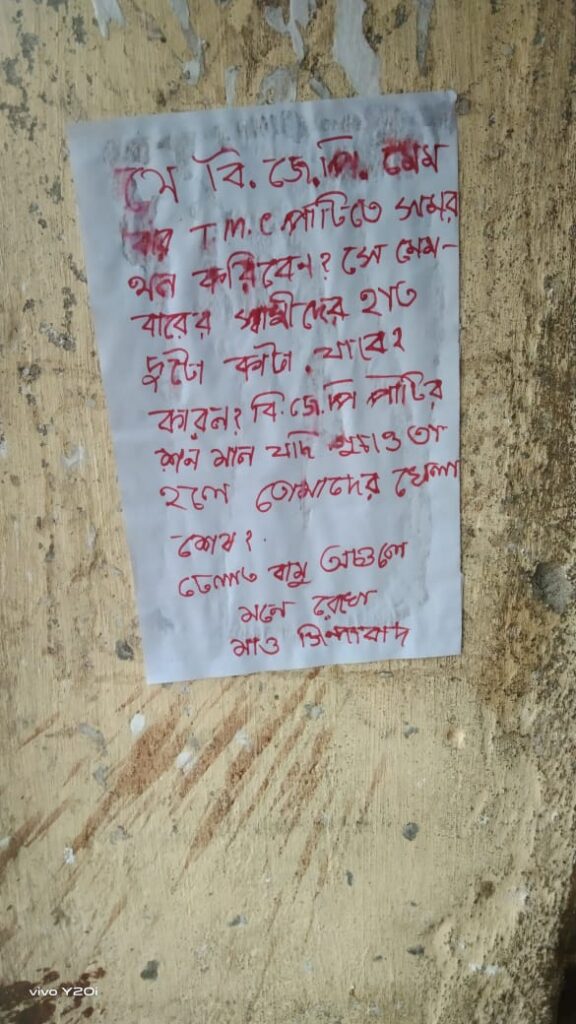 যে বি.জে.পি. মেম
বার T.M.C পার্টিতে সমর
থন করিবেন? সে মেম-
বারের স্বামীদের হাত
দুটো কাটা যাবে?
কারন? বি.জে.পি পার্টির
মান যদি তা
হলে তোমাদের খেলা
শেষ?
মনে রেখো
মাও জিন্দাবাদ
vivo Y20i